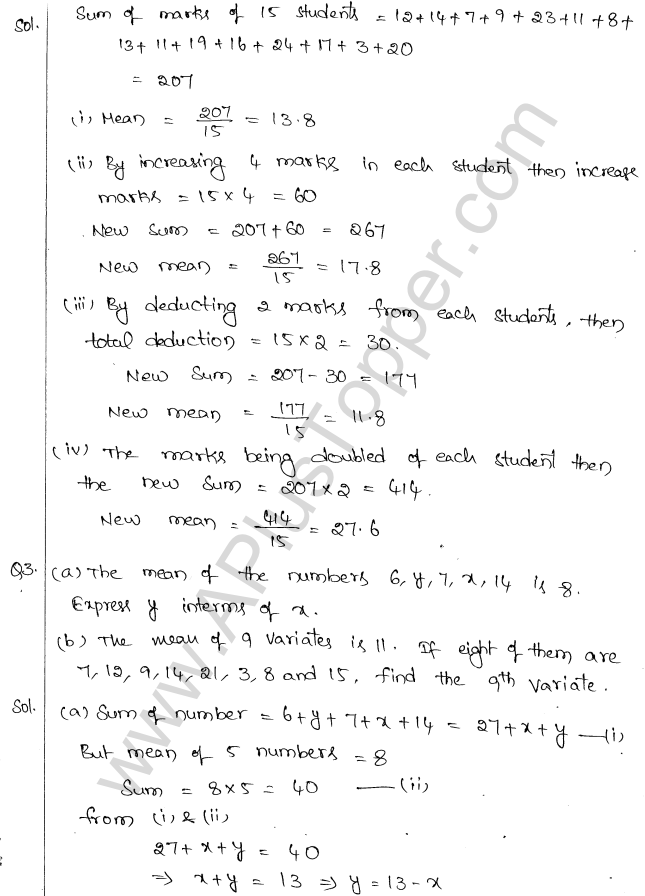 Sol. Sum of marks of 15 students = 12+14+7+9+23+11+8+
13+11+19+16+24+17+3+20
= 207
(i) Mean = 207/15 = 13.8
(ii) By increasing 4 marks in each student then increase
marks = 15×4 = 60
New sum = 207+60 = 267
New mean = 267/15 = 17.8
(iii) By deducting 2 marks from each students, then
total deduction = 15×2 = 30.
New Sum = 207-30 = 177
New mean = 177/15 = 11.8
(iv) The marks being doubled of each student then
the new sum = 207×2 = 414.
New mean = 414/15 = 27.6
Q3. (a) The mean of the numbers 6, y, 7, x, 14 is 8.
Express y interms of x.
(b) The mean of 9 variates is 11. If eight of them are
7, 12, 9, 14, 21, 3, 8 and 15, find the 9th variate.
Sol. (a) Sum of number = 6+y+7+x+14 = 27+x+y —(i)
But mean of 5 numbers = 8
Sum = 8×5 = 40 —(ii)
from (i) & (ii)
27+x+y = 40
⇒ x+y = 13 ⇒ y = 13-x
www.APlusTopper.com